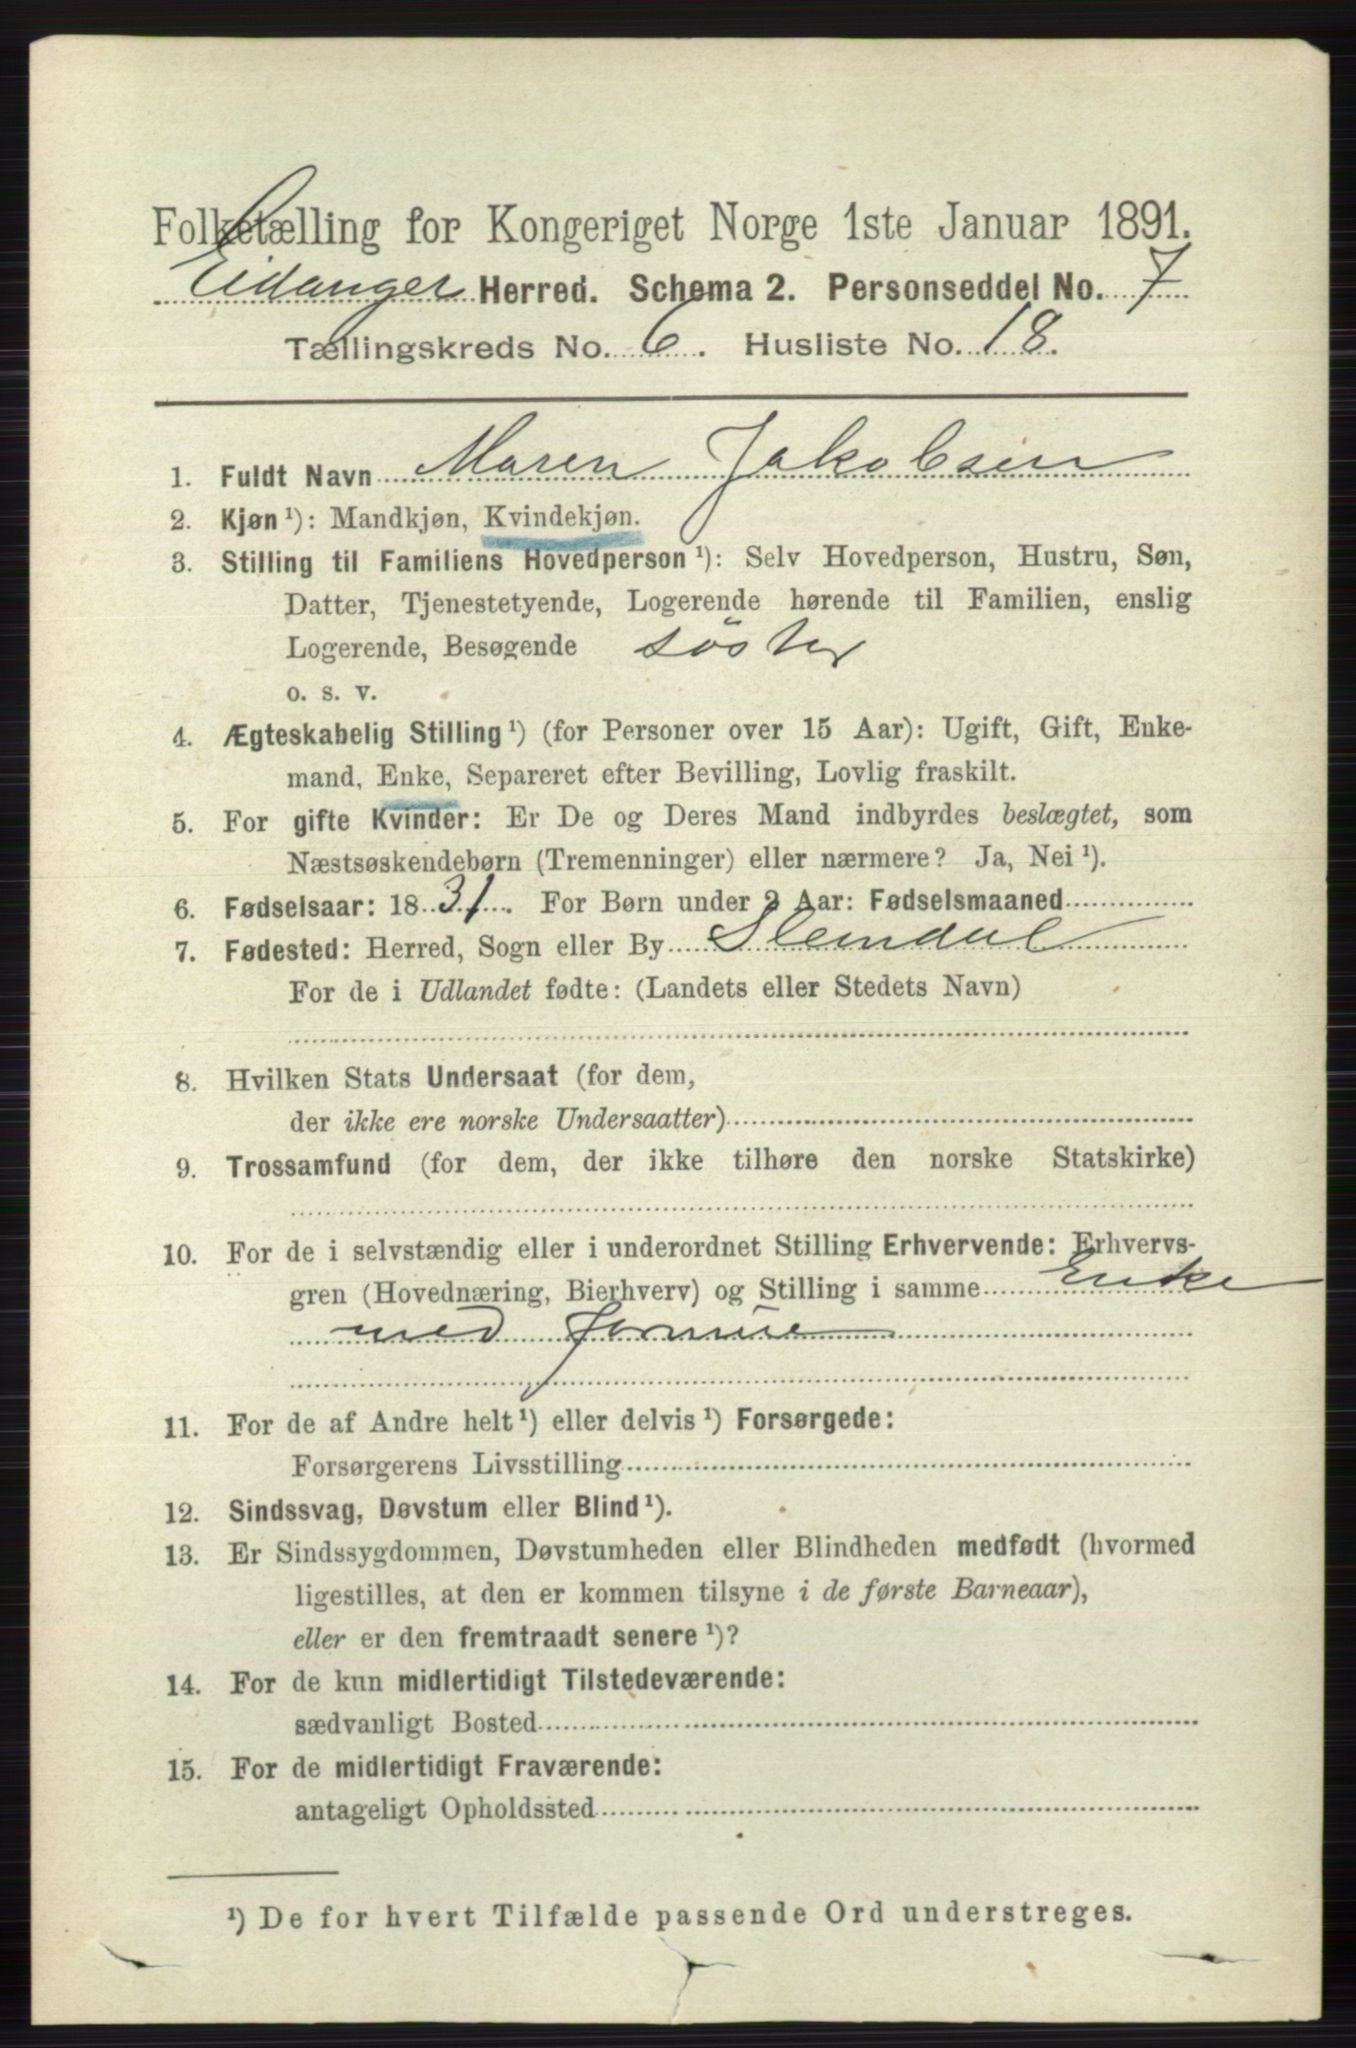 Folketælling for Kongeriget Norge 1ste Januar 1891.
Eidanger Herred. Schema 2. Personseddel No. 7
Tællingskreds No. 6. Husliste No. 18.
1. Fuldt Navn Maren Jakobsen
2. Kjøn¹): Mandkjøn, Kvindekjøn.
3. Stilling til Familiens Hovedperson¹): Selv Hovedperson, Hustru, Søn,
Datter, Tjenestetyende, Logerende hørende til Familien, enslig
Logerende, Besøgende søster
o. s. v.
4. Ægteskabelig Stilling¹) (for Personer over 15 Aar): Ugift, Gift, Enke-
mand, Enke, Separeret efter Bevilling, Lovlig fraskilt.
5. For gifte Kvinder: Er De og Deres Mand indbyrdes beslægtet, som
Næstsøskendebørn (Tremenninger) eller nærmere? Ja, Nei¹).
6. Fødselsaar: 1831. For Børn under 2 Aar: Fødselsmaaned
7. Fødested: Herred, Sogn eller By Slemdal
For de i Udlandet fødte: (Landets eller Stedets Navn)
8. Hvilken Stats Undersaat (for dem,
der ikke ere norske Undersaatter)
9. Trossamfund (for dem, der ikke tilhøre den norske Statskirke)
10. For de i selvstændig eller i underordnet Stilling Erhvervende: Erhvervs-
gren (Hovednæring, Bierhverv) og Stilling i samme Enke
med formue
11. For de af Andre helt¹) eller delvis¹) Forsørgede:
Forsørgerens Livsstilling
12. Sindssvag, Døvstum eller Blind¹).
13. Er Sindssygdommen, Døvstumheden eller Blindheden medfødt (hvormed
ligestilles, at den er kommen tilsyne i de første Barneaar),
eller er den fremtraadt senere¹)?
14. For de kun midlertidigt Tilstedeværende:
sædvanligt Bosted
15. For de midlertidigt Fraværende:
antageligt Opholdssted
¹) De for hvert Tilfælde passende Ord understreges.